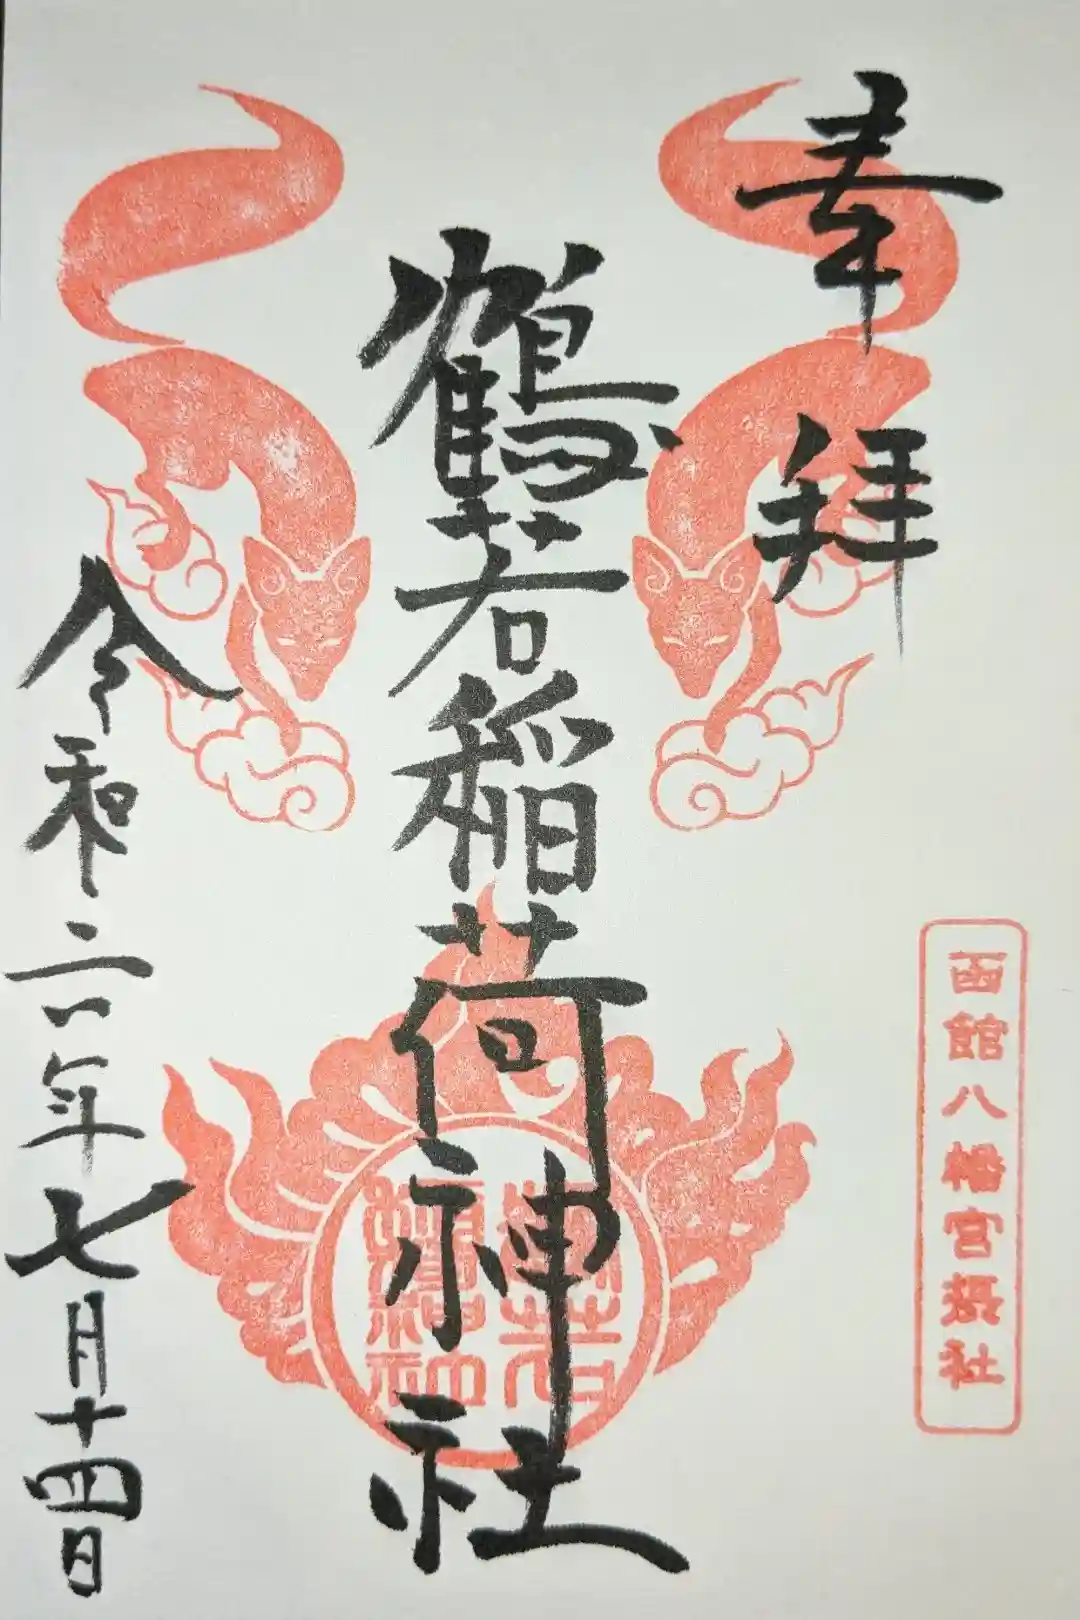 奉拝
函館八幡宮摂社
鶴若稲荷神社
令和六年七月十四日